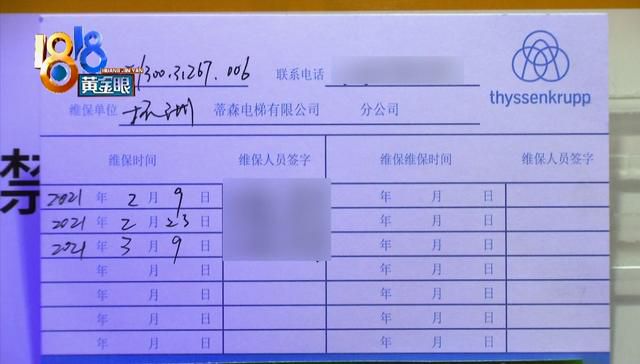 1818
HUANG JIN YAN
黄金眼
1300.31267.006 联系电话
thyssenkrupp
维保单位 杭州 蒂森电梯有限公司 分公司
维保时间 维保人员签字 维保维保时间 维保人员签字
2021 年 2 月 9 日 年 月 日
2021 年 2 月 23 日 年 月 日
2021 年 3 月 9 日 年 月 日
年 月 日 年 月 日
年 月 日 年 月 日
年 月 日 年 月 日
年 月 日 年 月 日
禁